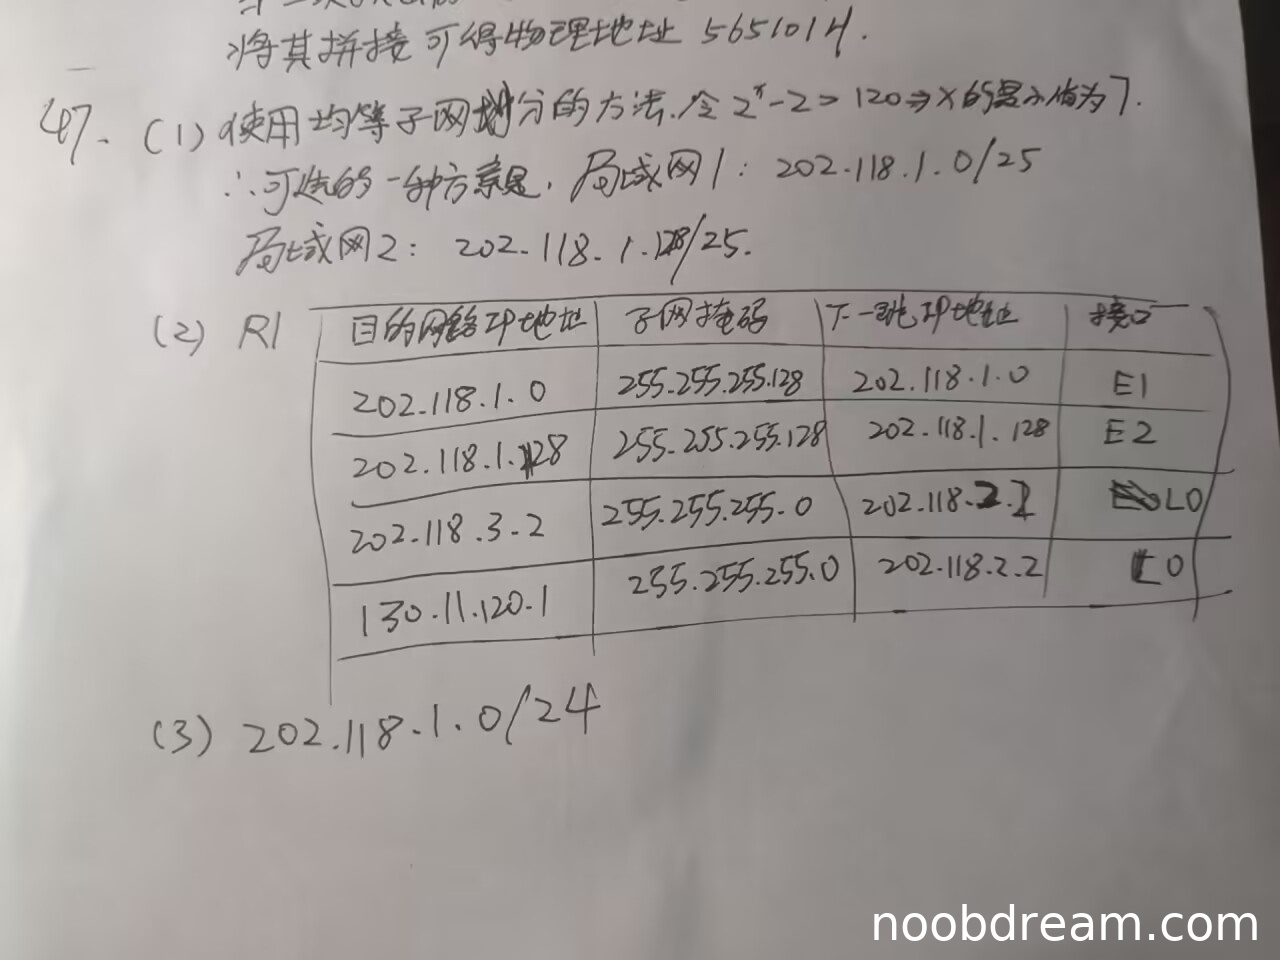 将其拼接可得物理地址 5651014.
47. (1) 使用均等子网划分的方法.令 2^x-2>120⇒x的最小值为7.
∴可选的一种方案是, 局域网1: 202.118.1.0/25
局域网2: 202.118.1.128/25.
(2) R1 目的网络IP地址 子网掩码 下一跳IP地址 接口
202.118.1.0 255.255.255.128 202.118.1.0 E1
202.118.1.128 255.255.255.128 202.118.1.128 E2
202.118.3.2 255.255.255.0 202.118.2.2 L0
130.11.120.1 255.255.255.0 202.118.2.2 L0
(3) 202.118.1.0/24
noobdream.com